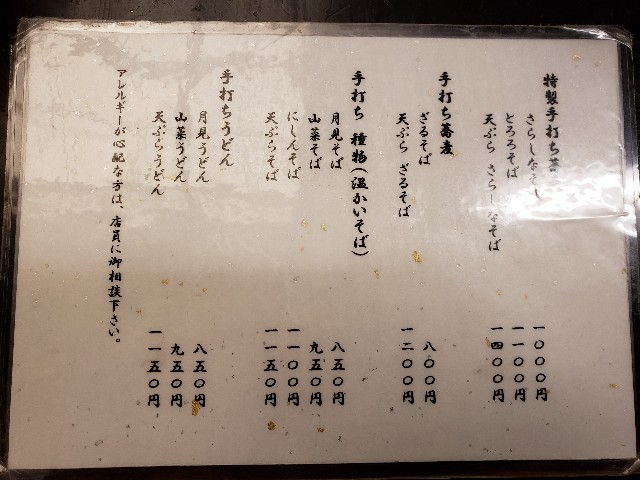 特製手打ち蕎
さらしなそば 一〇〇〇円
とろろそば 一一〇〇円
天ぷら さらしなそば 一四〇〇円
手打ち蕎麦
ざるそば 八〇〇円
天ぷら ざるそば 一二〇〇円
手打ち 種物(温かいそば)
月見そば 八五〇円
山菜そば 九五〇円
にしんそば 一一〇〇円
天ぷらそば 一一五〇円
手打ちうどん
月見うどん 八五〇円
山菜うどん 九五〇円
天ぷらうどん 一一五〇円
アレルギーが心配な方は、店員に御相談下さい。